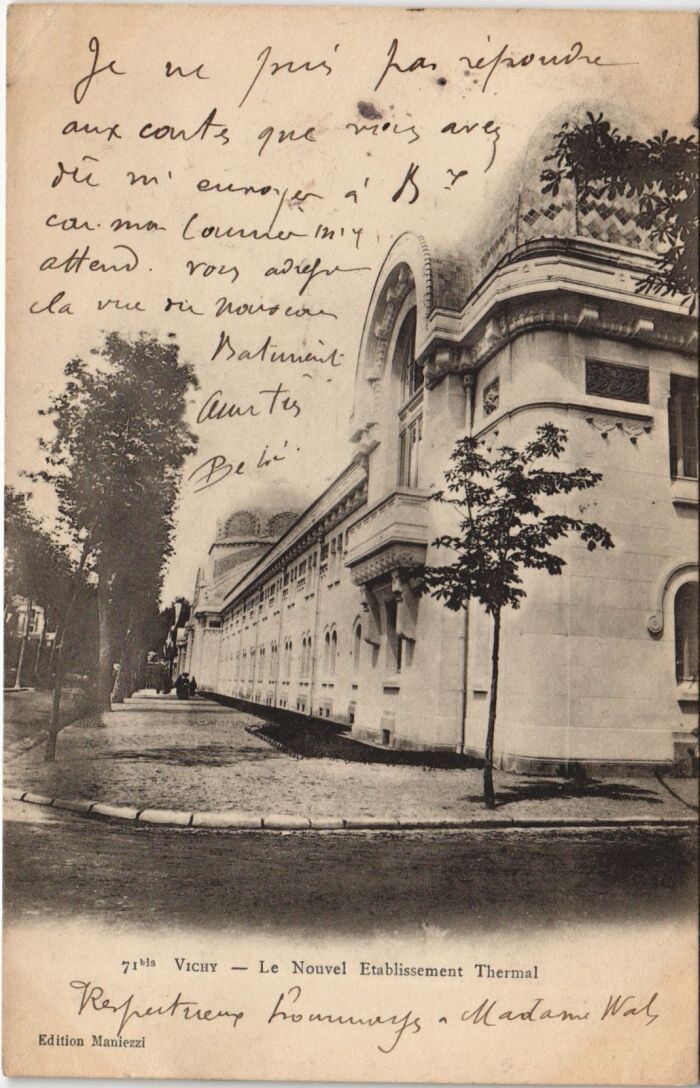 Je ne puis pas répondre
aux cartes que vous avez
dû m'envoyer à B
car mon courrier m'y
attend. vous adresse
la vue du nouveau
Batiment
71bis VICHY — Le Nouvel Etablissement Thermal
Respectueux hommages à Madame
Edition Maniezzi